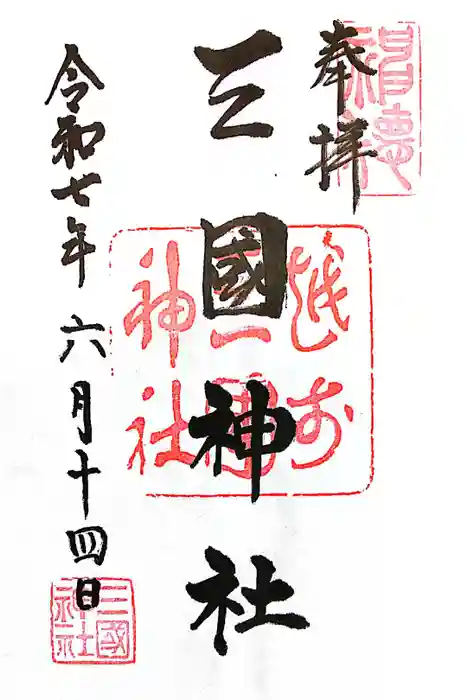 奉拝
三國神社
令和七年 六月十四日
越前
三國
神社
三國
神社